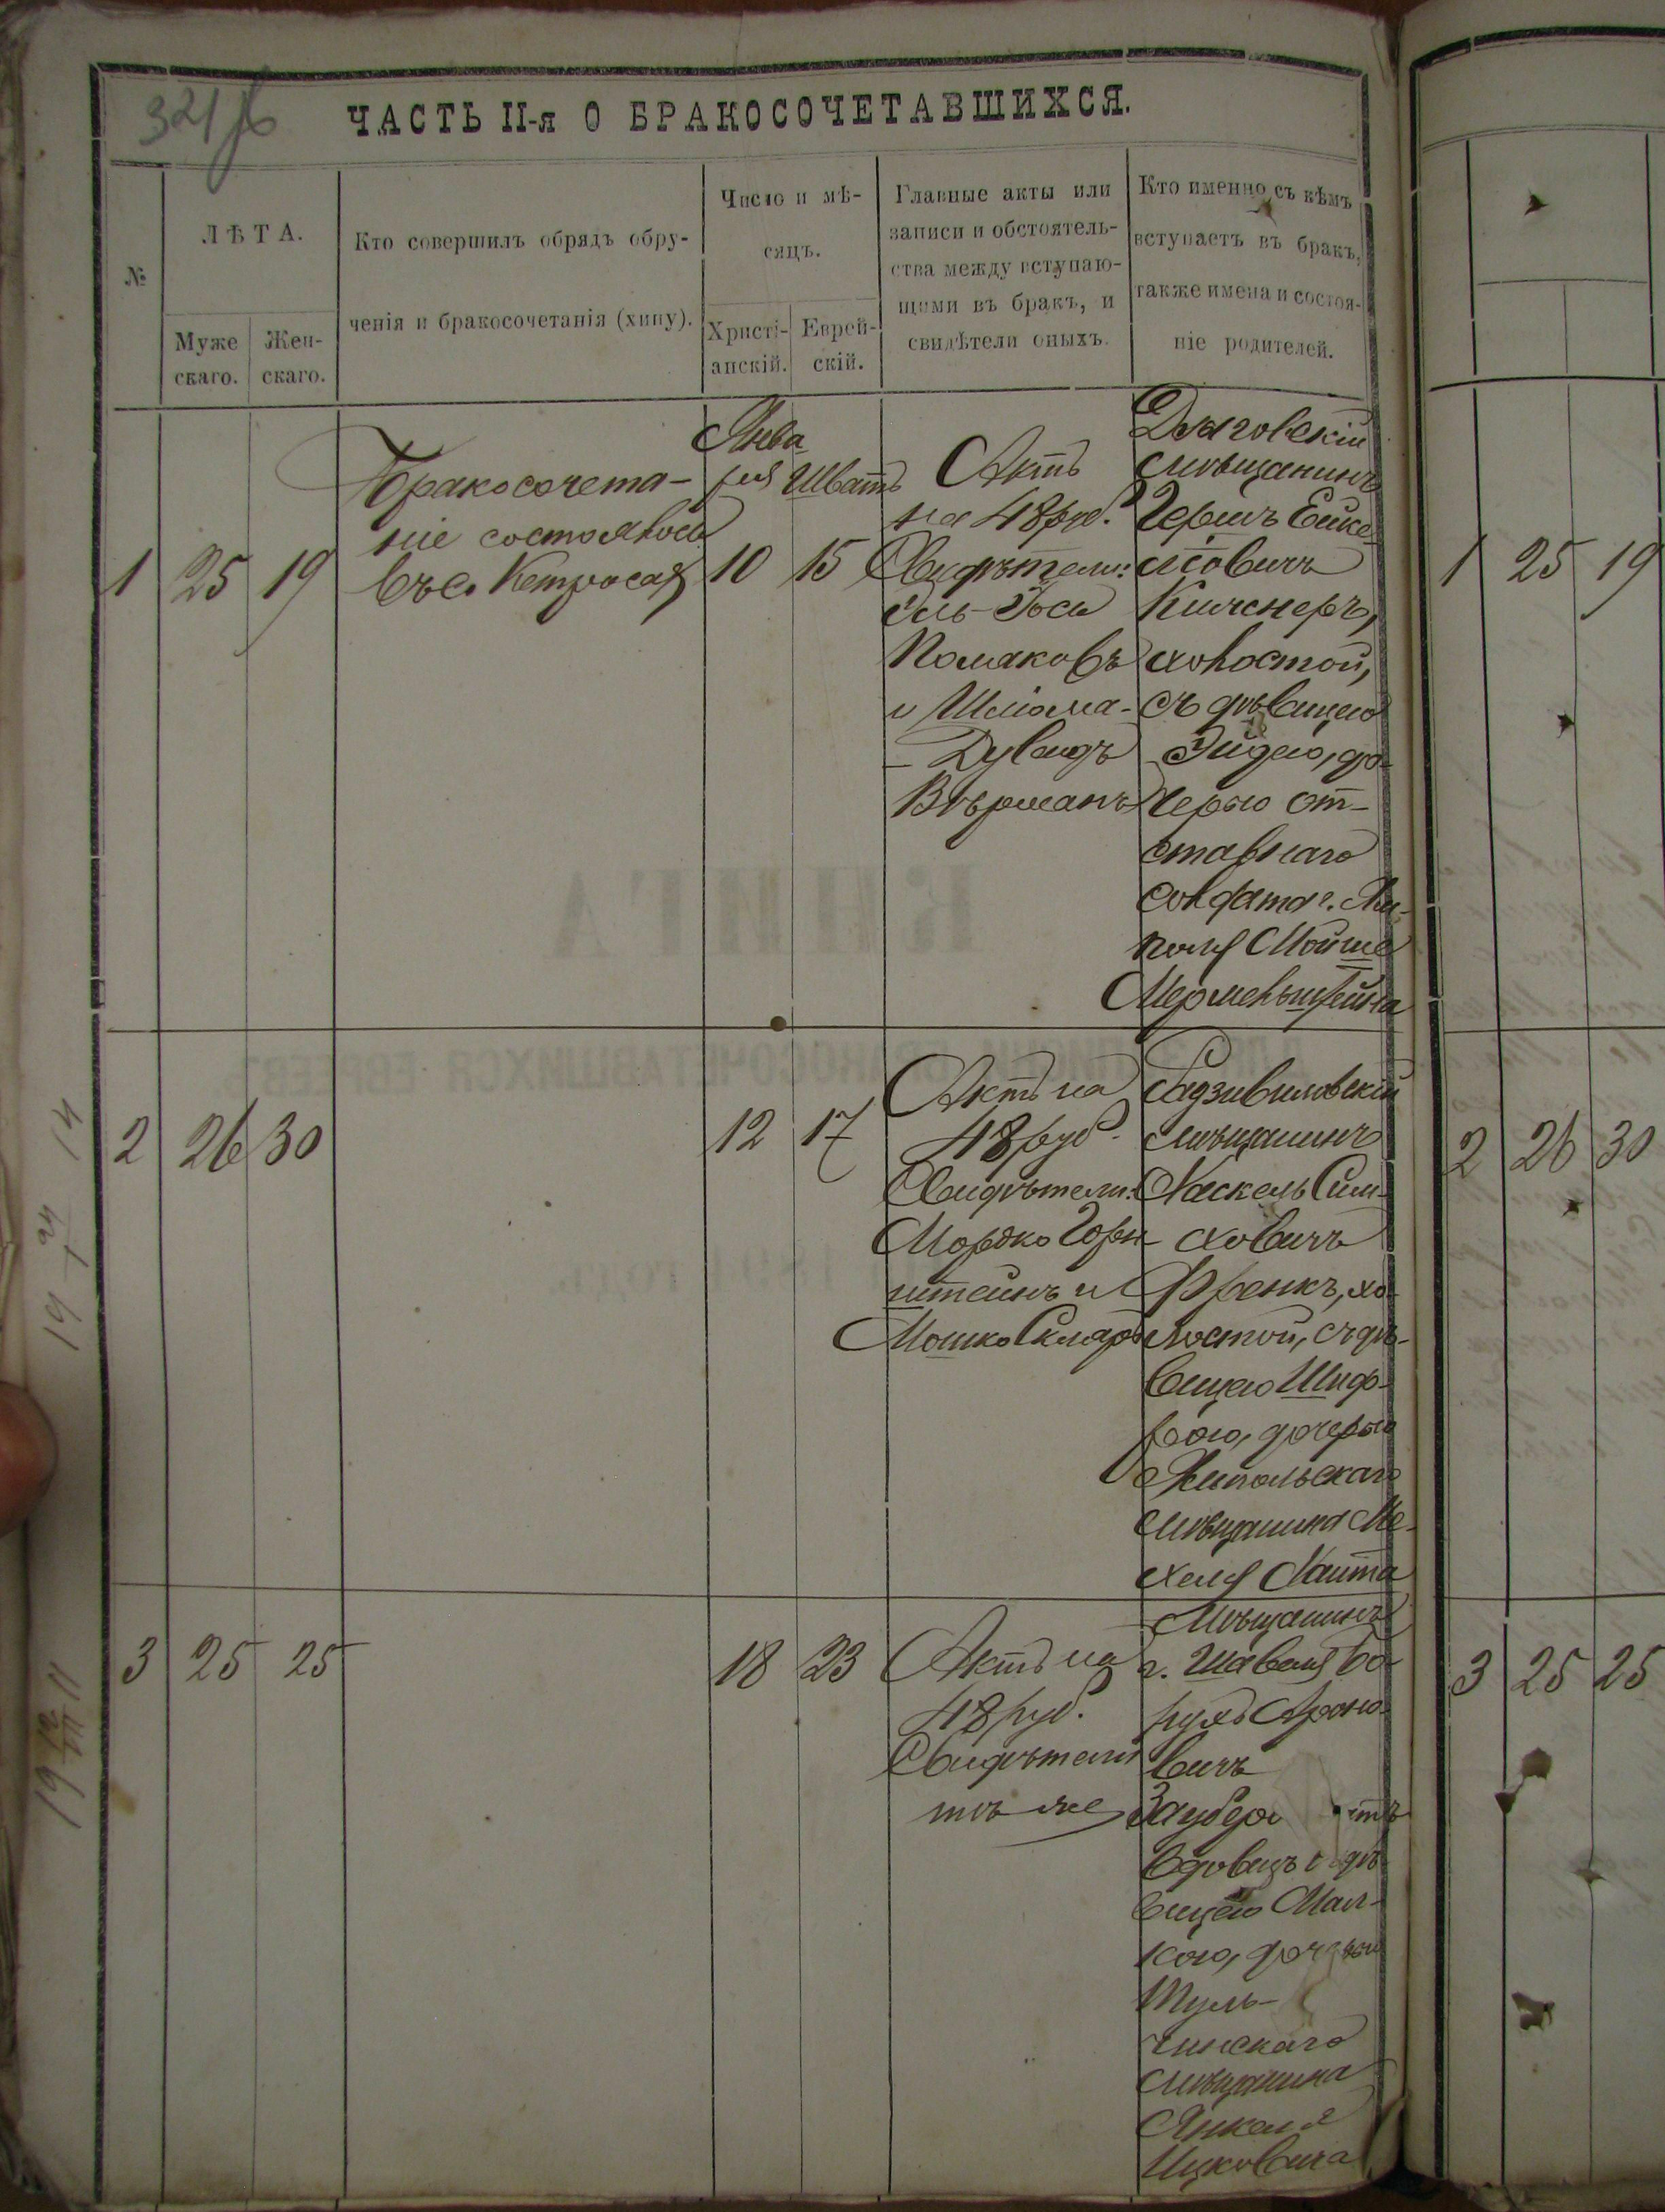 321 об
ЧАСТЬ II-я О БРАКОСОЧЕТАВШИХСЯ.
№
ЛѢТА.
Муже
скаго.
Жен-
скаго.
Кто совершилъ обрядъ обру-
ченія и бракосочетанія (хипу).
Число и мѣ-
сяцъ.
Христі-
анскій.
Еврей-
скій.
Главные акты или
записи и обстоятель-
ства между вступаю-
щими въ бракъ, и
свидѣтели оныхъ.
Кто именно съ кѣмъ
вступаетъ въ бракъ,
также имена и состоя-
ніе родителей.
1
25
19
Бракосочета-
ніе состоялось
въ с. Кетросах
Янва-
ря
10
Шватъ
15
Актъ
на 48 руб.
Свидѣтели:
Поляковъ
и Шлома-
Дувидъ
Вѣрманъ
мѣщанинъ
Гершъ
Кишнеръ,
холостой,
съ дѣвицею
Эйдею, до-
черью от-
ставнаго
солдата г.
Мойше
2
26
30
12
17
Актъ на
48 руб.
Свидѣтели:
Мордко Горн-
штейнъ и
Мошко Скляръ
Радзивиловскій
мѣщанинъ
Хаскель Сим-
ховичъ
Френкъ, хо-
лостой, съ дѣ-
вицею Шиф-
рою, дочерью
мѣщанина Ме-
хеля
3
25
25
18
23
Актъ на
48 руб.
Свидѣтели
тѣ же
Мѣщанинъ
г. Шавеля Бо-
рухъ Ароно-
вичъ
вдовецъ съ дѣ-
вицею Мал-
кою, дочерью
Туль-
чинскаго
мѣщанина
Янкеля
Ицковича
1 25 19
2 26 30
3 25 25